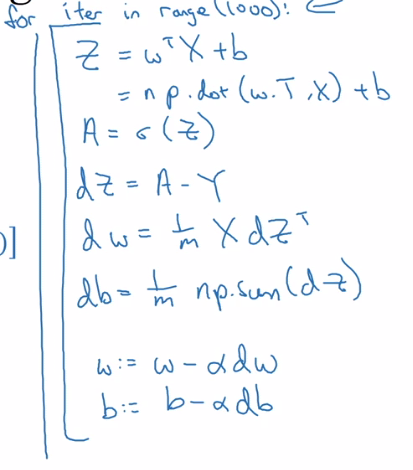 for iter in range(1000): ←
Z = wᵀX + b
= np.dot(w.T, X) + b
A = σ(Z)
dZ = A - Y
dw = 1/m X dZᵀ
)]
db = 1/m np.sum(dZ)
w := w - αdw
b := b - αdb